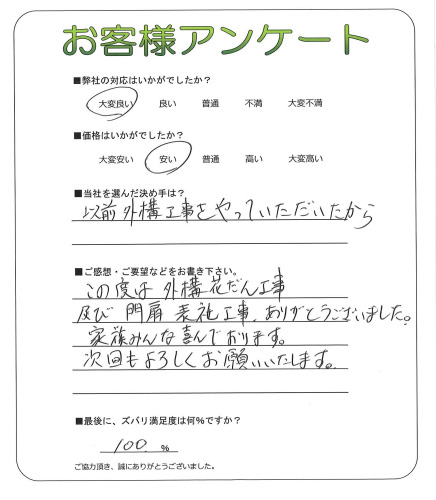 お客様アンケート
■弊社の対応はいかがでしたか？
大変良い 良い 普通 不満 大変不満
■価格はいかがでしたか？
大変安い 安い 普通 高い 大変高い
■当社を選んだ決め手は？
以前外構工事をやっていただいたから
■ご感想・ご要望などをお書き下さい。
この度は 外構花だん工事
及び 門扉 表札工事、ありがとうございました。
家族みんな喜んでおります。
次回もよろしくお願いいたします。
■最後に、ズバリ満足度は何%ですか？
100 %
ご協力頂き、誠にありがとうございました。